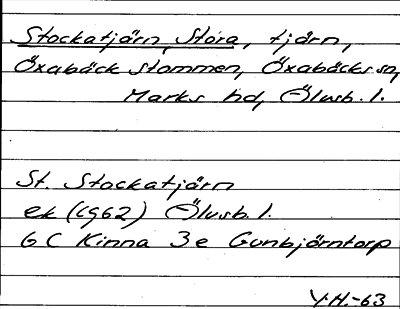 Stockatjärn, Stora, tjärn,
Öxabäck stommen, Öxabäcks sn,
Marks hd, Älvsb. l.
St. Stockatjärn
ek (1962) Älvsb. l.
6 C Kinna 3 e Gunbjörntorp
Y.H.-63